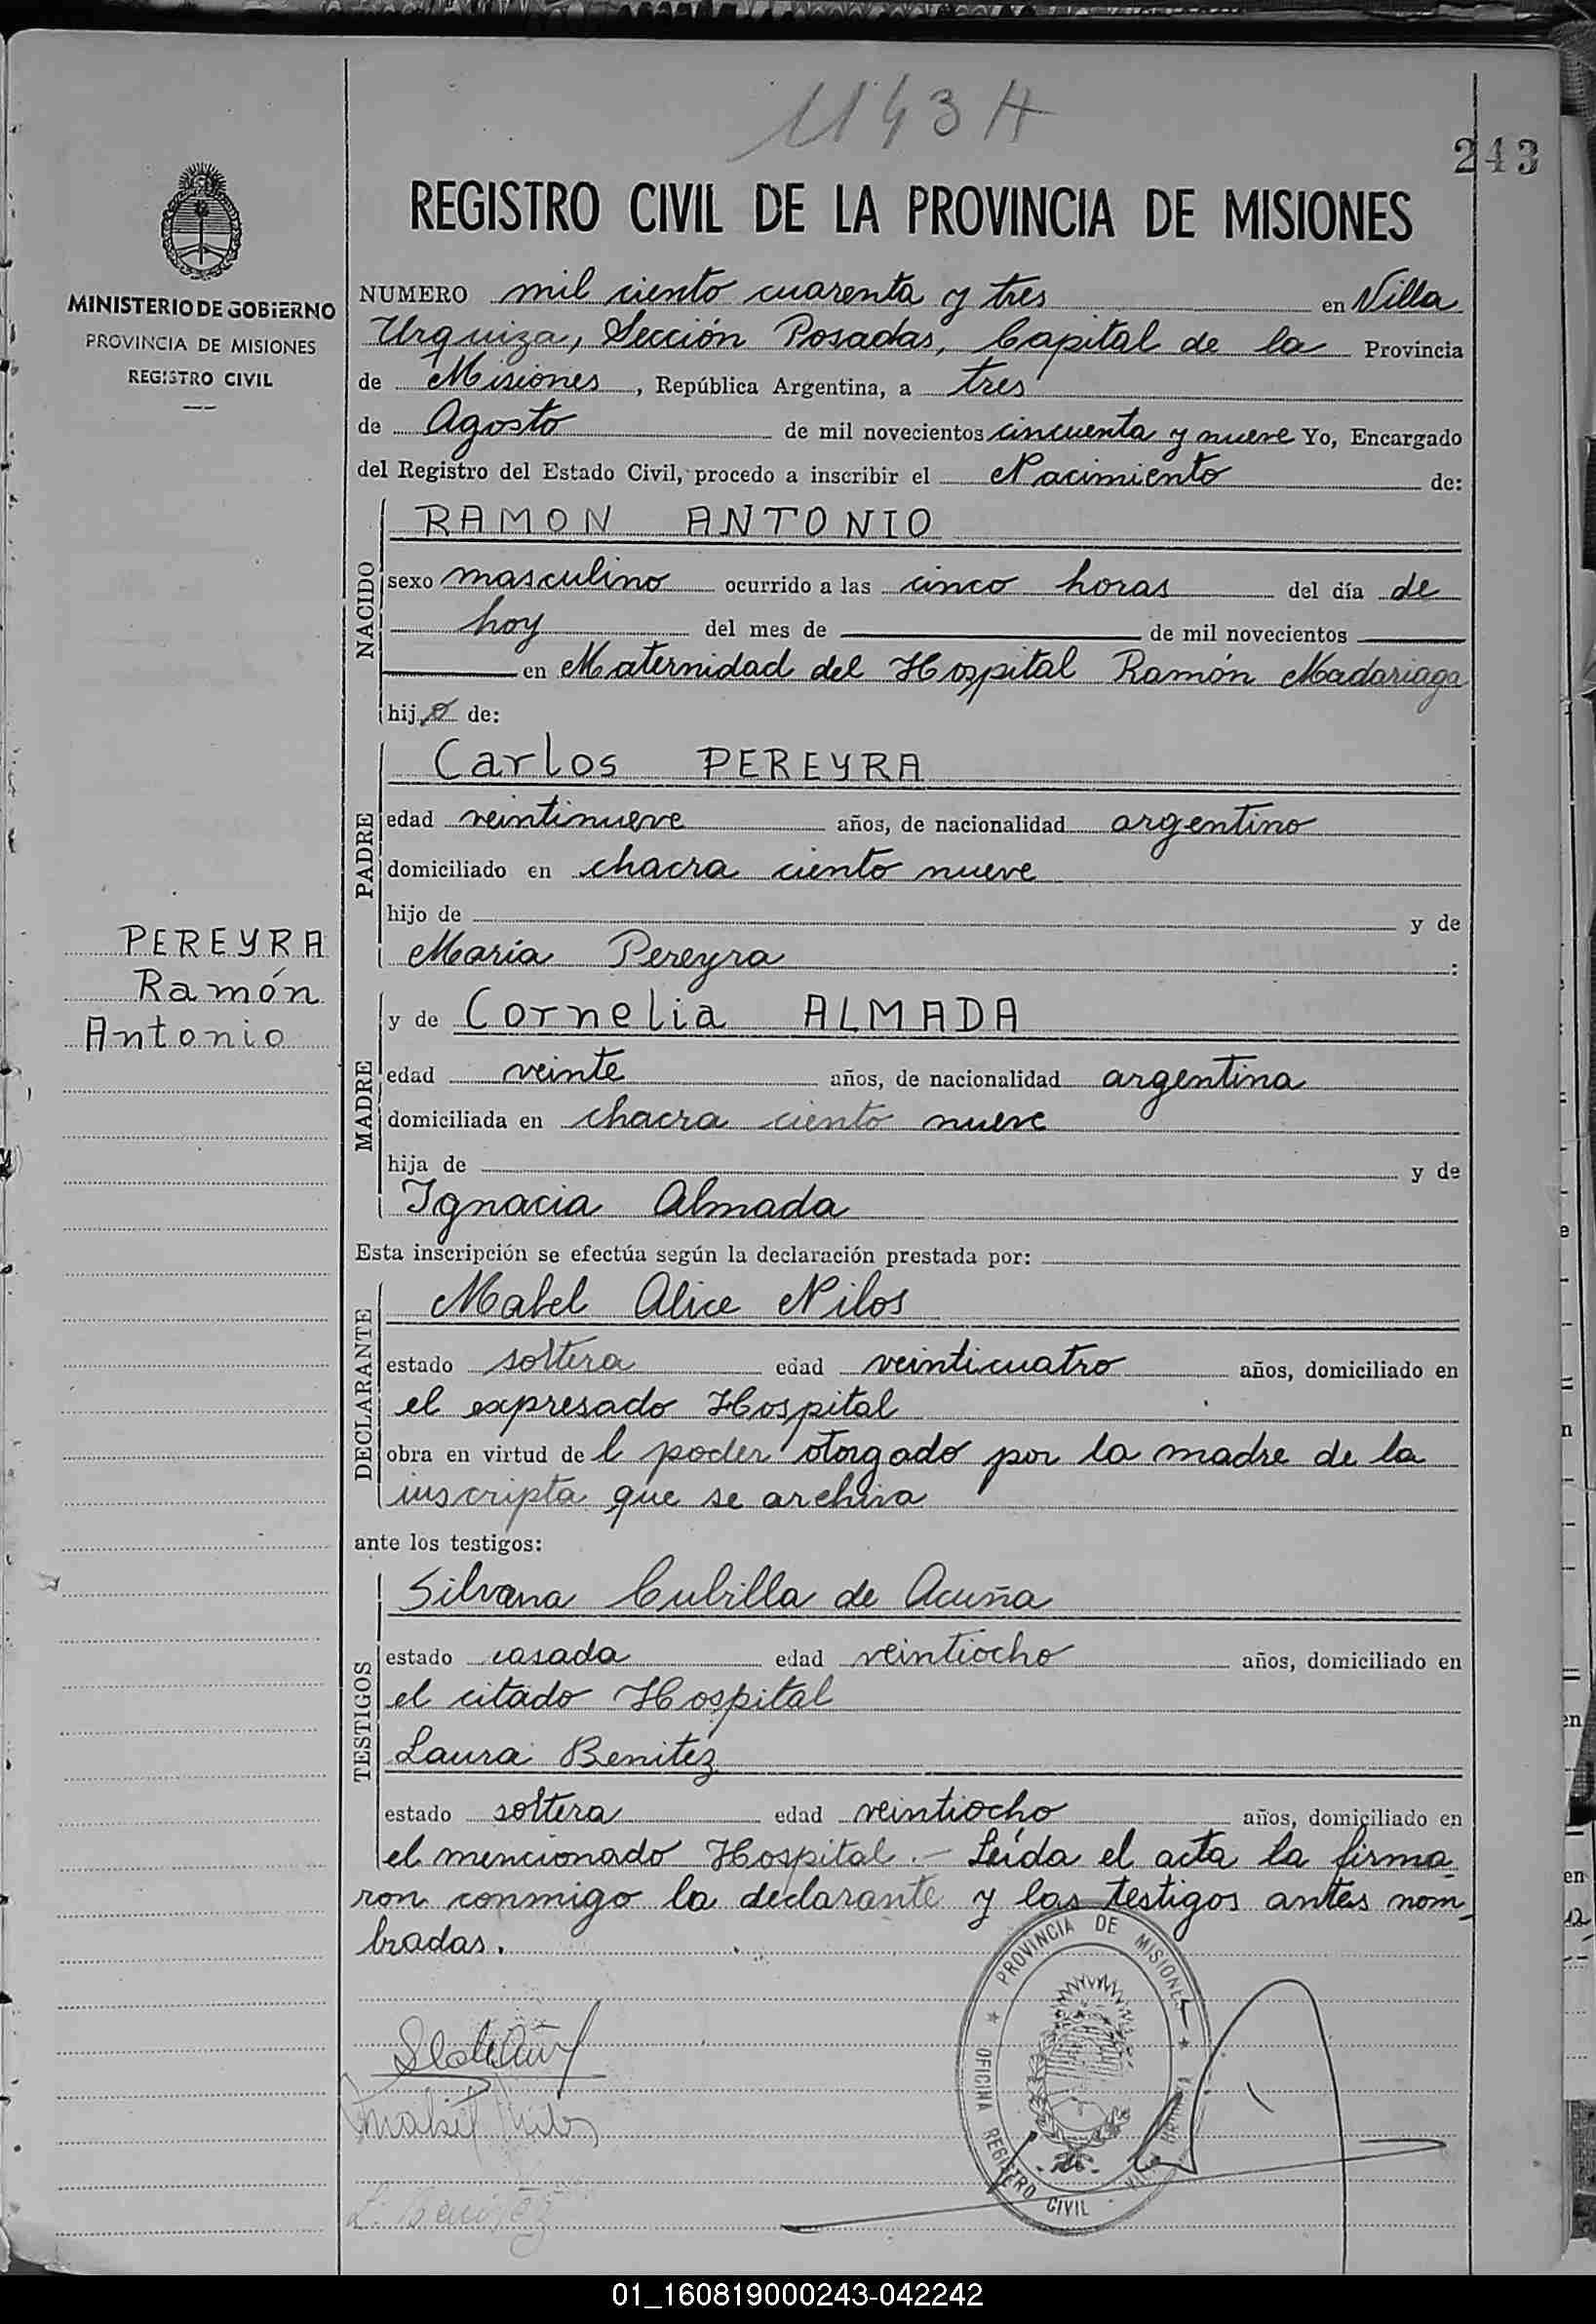 1143 A
243
REGISTRO CIVIL DE LA PROVINCIA DE MISIONES
MINISTERIO DE GOBIERNO
PROVINCIA DE MISIONES
REGISTRO CIVIL
NUMERO mil ciento cuarenta y tres en Villa
Urquiza, Sección Posadas, Capital de la Provincia
de Misiones, República Argentina, a tres
de Agosto de mil novecientos cincuenta y nueve Yo, Encargado
del Registro del Estado Civil, procedo a inscribir el Nacimiento de:
NACIDO
RAMON ANTONIO
sexo masculino ocurrido a las cinco horas del día de
hoy del mes de de mil novecientos
en Maternidad del Hospital Ramón Madariaga
hijo de:
PADRE
Carlos PEREYRA
edad veintinueve años, de nacionalidad argentino
domiciliado en chacra ciento nueve
hijo de y de
María Pereyra :
PEREYRA
Ramón
Antonio
MADRE
y de Cornelia ALMADA
edad veinte años, de nacionalidad argentina
domiciliada en chacra ciento nueve
hija de y de
Ignacia Almada
Esta inscripción se efectúa según la declaración prestada por:
DECLARANTE
Mabel Alice Nilos
estado soltera edad veinticuatro años, domiciliado en
el expresado Hospital
obra en virtud del poder otorgado por la madre de la
inscripta que se archiva
ante los testigos:
TESTIGOS
Silvana Cubilla de Acuña
estado casada edad veintiocho años, domiciliado en
el citado Hospital
Laura Benitez
estado soltera edad veintiocho años, domiciliado en
el mencionado Hospital.- Leída el acta la firma-
ron conmigo la declarante y las testigos antes nom-
bradas.
PROVINCIA DE MISIONES
OFICINA REGISTRO CIVIL
Mabel Nilos
L. Benitez
01_160819000243-042242